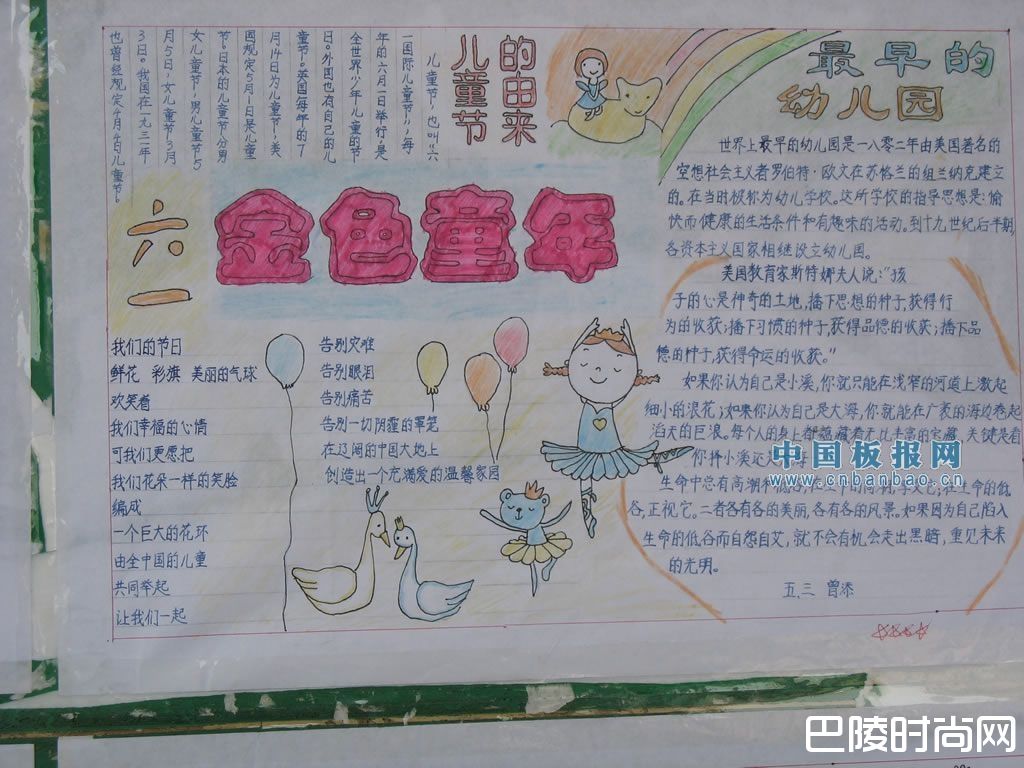 儿童节的由来
儿童节,也叫“六
一国际儿童节”,每
年的六月一日举行,是
全世界少年儿童的节
日。外国也有自己的儿
童节。英国每年的7
月14日为儿童节,美
国规定5月1日是儿童
节。日本的儿童节分男
女儿童节,男儿童节5
月5日,女儿童节3月
3日。我国在一九三一年
也曾经规定4月4日儿童节。
六一
金色童年
我们的节日
鲜花 彩旗 美丽的气球
欢笑着
我们幸福的心情
可我们更愿把
我们花朵一样的笑脸
编成
一个巨大的花环
由全中国的儿童
共同举起
让我们一起
告别灾难
告别眼泪
告别痛苦
告别一切阴霾的笼
在辽阔的中国大地上
创造出一个充满爱的温馨家园
最早的
幼儿园
世界上最早的幼儿园是一八零二年由英国著名的
空想社会主义者罗伯特·欧文在苏格兰的纽兰纳克建立
的。在当时被称为幼儿学校。这所学校的指导思想是:愉
快而健康的生活条件和有趣味的活动。到十九世纪后半期,
各资本主义国家相继设立幼儿园。
美国教育家斯特娜夫人说:“孩
子的心是神奇的土地,播下思想的种子,获得行
为的收获;播下习惯的种子,获得品德的收获;播下品
德的种子,获得命运的收获。”
如果你认为自己是小溪,你就只能在浅窄的河道上激起
细小的浪花;如果你认为自己是大海,你就能在广袤的海边卷起
滔天的巨浪。每个人的身上都蕴藏着无比丰富的宝藏,关键是看
你择小溪还大海
生命中总有高潮和低谷,在生命的高潮,享受它;在生命的低
谷,正视它。二者各有各的美丽,各有各的风景。如果因为自己陷入
生命的低谷而自怨自艾,就不会有机会走出黑暗,重见未来
的光明。
五.三 曾添
中国板报网
www.cnbanbao.cn
巴陵时尚网